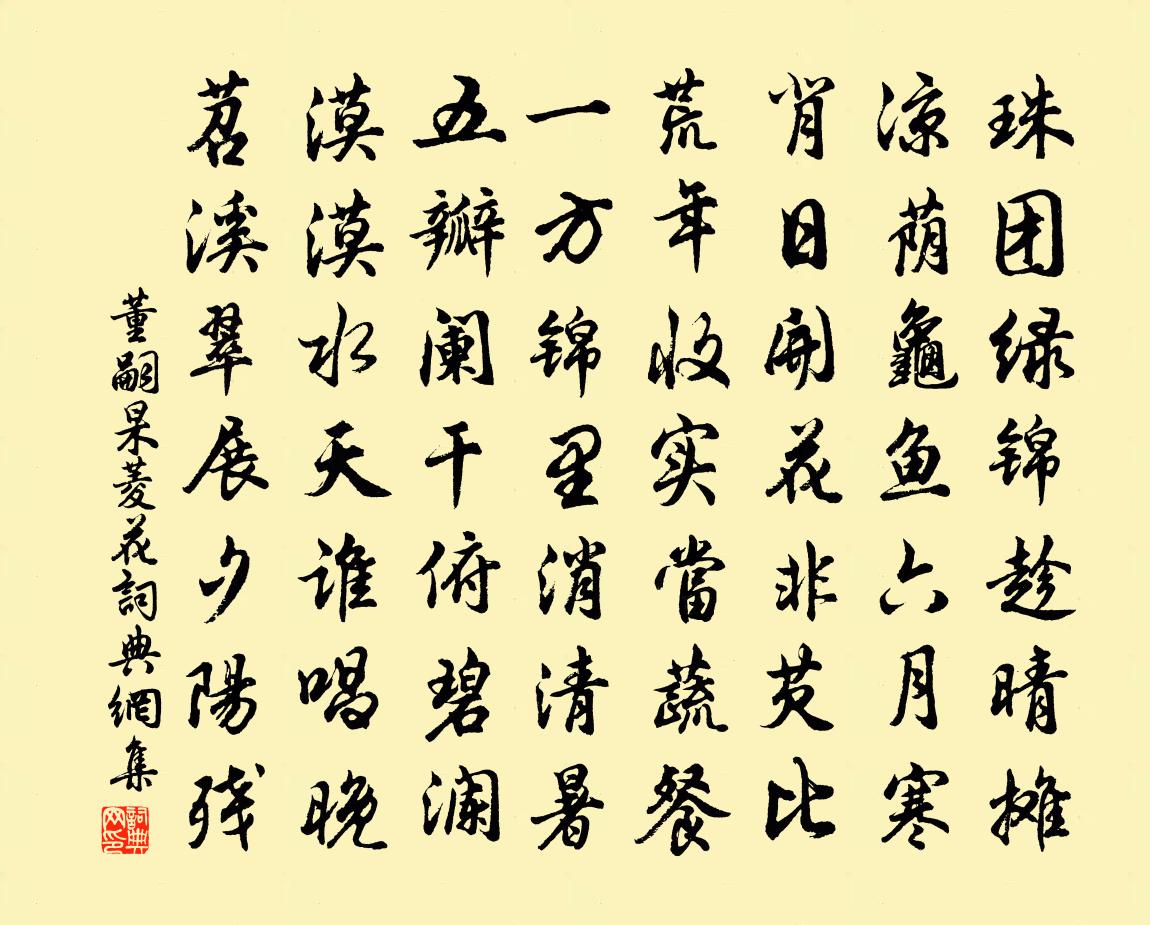 珠团绿锦趁晴摊
凉荫龜鱼六月寒
背日开花非芡比
荒年收实當蔬餐
一方锦里消清暑
五瓣阑干俯碧澜
漠漠水天谁唱晚
苕溪翠展夕陽残
董嗣杲菱花詞典網集
詞典网印